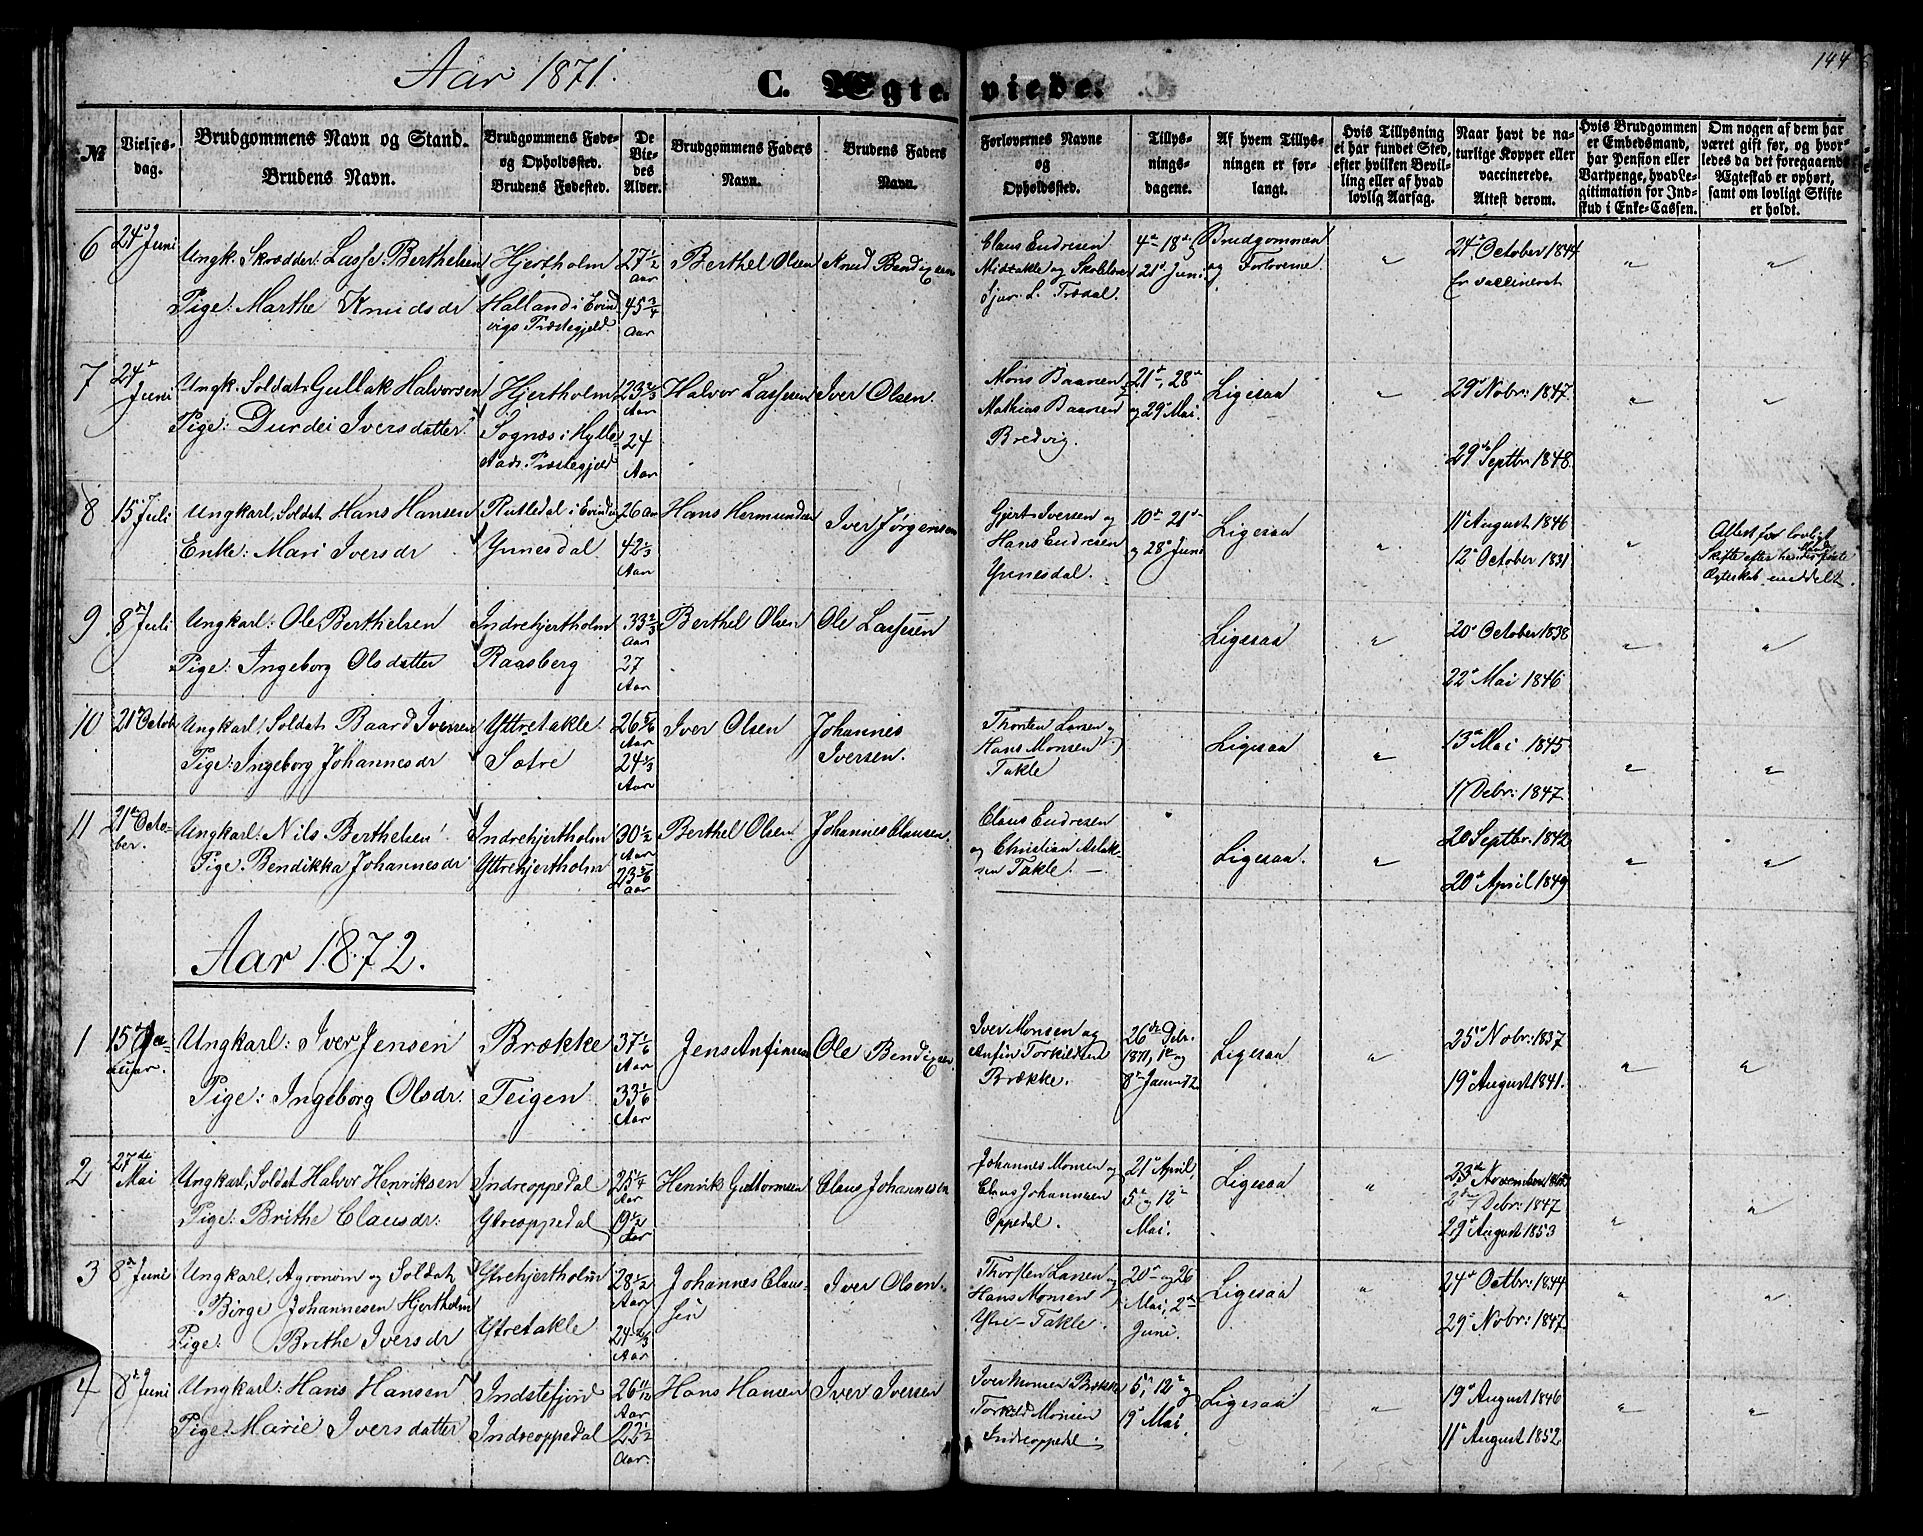 Aar 1871.
C. Ægte-viede.
144
№
Vielses-
dag.
Brudgommens Navn og Stand.
Brudens Navn.
Brudgommens Føde-
og Opholdssted.
Brudens Fødested.
De
Vie-
des
Alder.
Brudgommens Faders
Navn.
Brudens Faders
Navn.
Forlovernes Navne
og
Opholdssted.
Tillys-
nings-
dagene.
Af hvem Tillys-
ningen er for-
langt.
Hvis Tillysning
ei har fundet Sted,
efter hvilken Bevil-
ling eller af hvad
lovlig Aarsag.
Naar havt de na-
turlige Kopper eller
vaccinerede.
Attest derom.
Hvis Brudgommen
er Embedsmand,
har Pension eller
Vartpenge, hvad Le-
gitimation for Ind-
skud i Enke-Cassen.
Om nogen af dem har
været gift før, og hvor-
ledes da det foregaaende
Ægteskab er ophørt,
samt om lovligt Skifte
er holdt.
6
24de Juni
Ungk. Skrædder: Lasse Berthelsen
Pige: Marthe Knudsdr
Hjertholm
Halland i Evind
vigs Præstegjeld.
27 1/2
Aar
45 3/4
Aar
Berthel Olsen
Knud Bendixen
Claus Endresen
Midtakle og Skolelærer
Sjur L. Trædal.
4de 18de og
21de Juni
Brudgommen
og Forloverne
"
24de October 1844
Er vaccineret
"
"
7
24de
Juni
Ungk. Soldat: Gullak Halvorsen
Pige: Durdei Iversdatter
Hjertholm
Sognæs i Hylle-
stads Præstegjeld
23 2/3
Aar
24
Aar
Halvor Lassesen
Iver Olsen.
Mons Baarsen
Mathias Baarsen
Bredvig.
21de, 28de
og 29de Mai.
Ligesaa
"
29de Nobr: 1847.
29de Septbr: 1848.
"
"
8
15 Juli
Ungkarl, Soldat Hans Hansen
Enke: Mari Iversdr
Rutledal i Evindvig
Ynnesdal
26 Aar
42 1/3
Aar
Hans Hermundsen
Iver Jørgensen
Gjert Iversen og
Hans Endresen
Ynnesdal.
10de 21de
og 28de Juni
Ligesaa
"
11te August 1846
12te October 1831
"
Attest for lovligt
Skifte efter hendes første
Mand
Ægteskab meddelt.
9
8de Juli
Ungkarl: Ole Berthelsen
Pige: Ingeborg Olsdatter
Indrehjertholm
Raasberg
33 2/3
Aar
27
Aar
Berthel Olsen
Ole Lassesen
Ligesaa
"
20de October 1838
22de Mai 1846
"
"
10
21de Octob
Ungkarl, Soldat Baard Iversen
Pige: Ingeborg Johannesdr
Yttretakle
Sætre
26 5/6
Aar
24 1/3
Aar
Iver Olsen
Johannes
Iversen.
Thorsten Larsen og
Hans Monsen
Takle
Ligesaa
"
13de Mai 1845
17 Debr: 1847.
"
"
11
21de Octo-
ber.
Ungkarl: Nils Berthelsen
Pige: Bendikka Johannesdr
Indrehjertholm
Yttrehjertholm
30 1/2
Aar
23 5/6
Aar
Berthel Olsen
Johannes Clausen.
Claus Endresen
og Christian Aslak-
sen Takle.
Ligesaa.
"
20 Septbr: 1842
20de April 1849
"
"
Aar 1872.
1
15de Ja-
nuar.
Ungkarl: Iver Jensen
Pige: Ingeborg Olsdr.
Brække
Teigen
37 1/6
Aar
33 1/6
Aar
Jens Anfinsen
Ole Bendixen
Iver Monsen og
Anfin Torkildsen
Brække.
26de Debr.
1871, 1te og
8de Januar 72
Ligesaa
"
25de Nobr: 1837
19de August 1841.
"
"
2
27de
Mai
Ungkarl, Soldat Halvor Henriksen
Pige: Brithe Clausdr:
Indreoppedal
Ytreoppedal
25 1/4
Aar
19 1/2
Aar
Henrik Guttormsen
Claus Johannesen
Johannes Monsen og
Claus Johannesen
Oppedal.
21de April,
5te og 12te
Mai.
Ligesaa
"
2de Debr: 1847
29de August 1853
"
"
3
8de Juni
Ungkarl, Agronom og Soldat,
Birge Johannesen Hjertholm
Pige: Brithe Iversdr
Ytrehjertholm
Ytretakle
28 1/2
Aar
24 2/3
Aar
Johannes Claus-
sen
Iver Olsen.
Thorsten Larsen og
Hans Monsen
Ytre-Takle.
20de og 26
Mai, 2den
Juni.
Ligesaa
"
24de Octbr: 1844
29de Nobr: 1847
"
"
4
8de Juni
Ungkarl: Hans Hansen
Pige: Marie Iversdatter
Indstefjord
Indreoppedal
26 11/12
Aar
22 1/2
Aar.
Hans Hansen
Iver Iversen
Iver Monsen Brække
Torkild Monsen
Indreoppedal.
5te, 12te og
19de Mai.
Ligesaa
"
19de August 1846
11te August 1852.
"
"